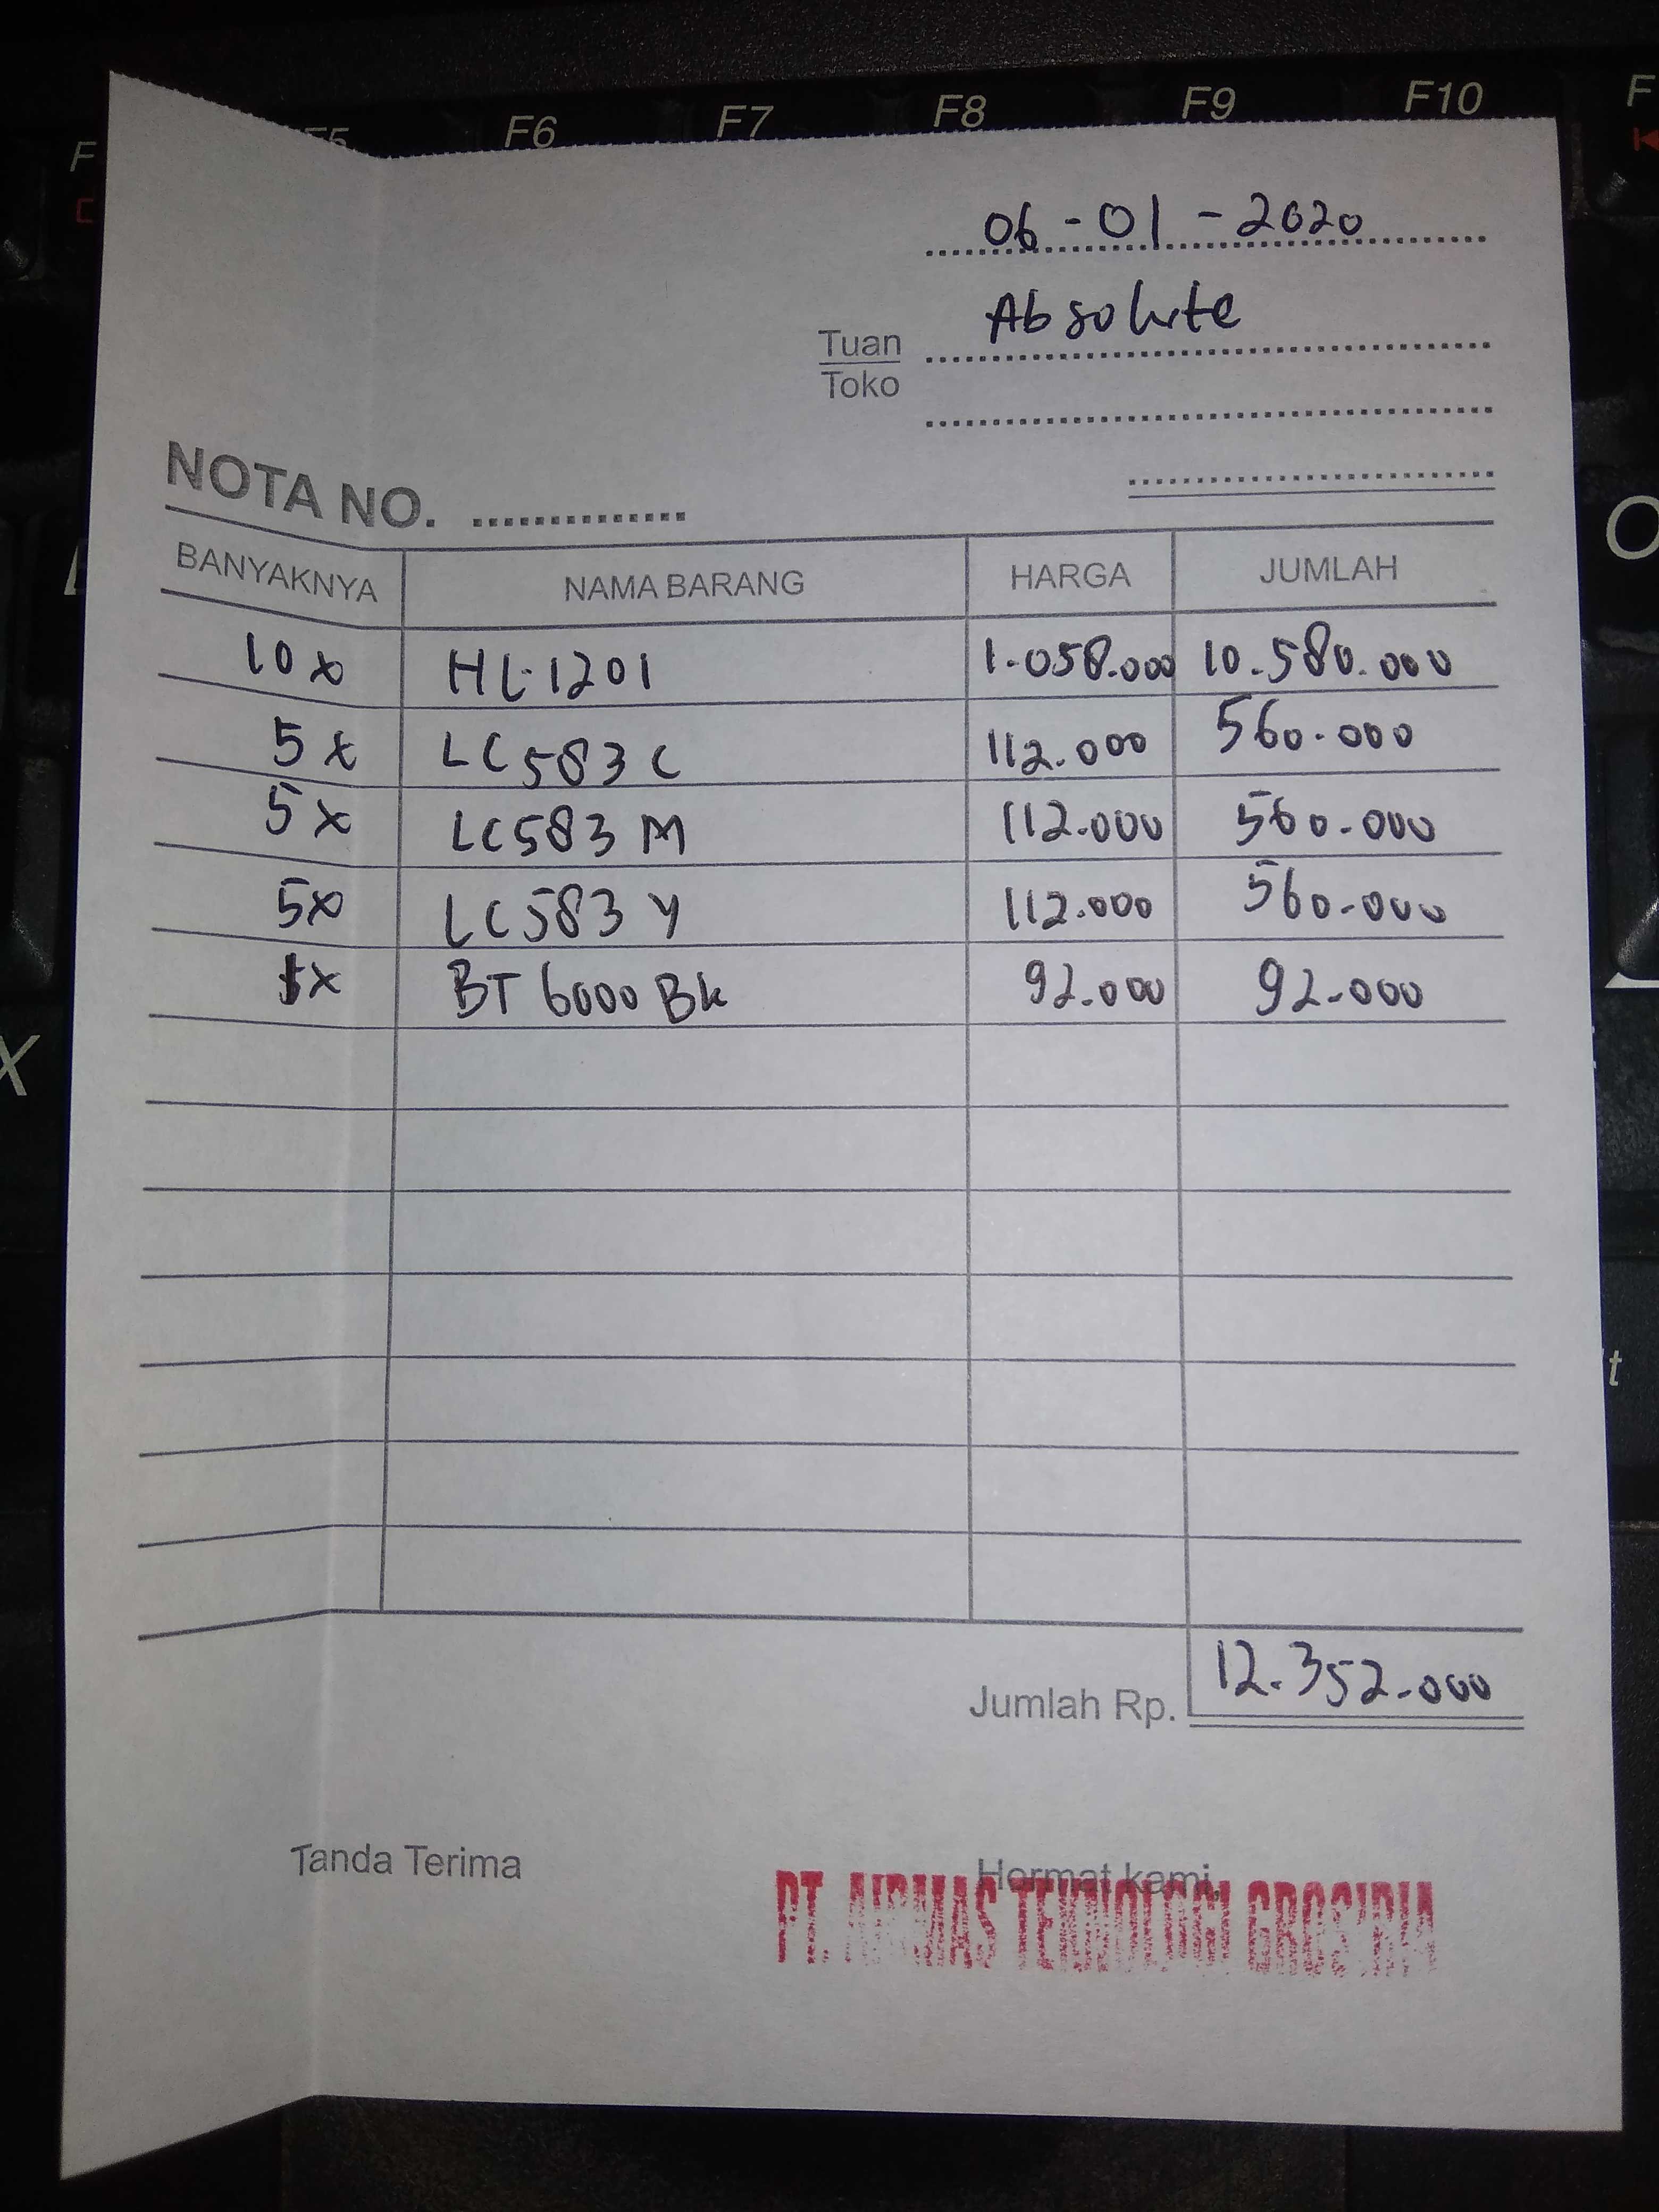 F5 F6 F7 F8 F9 F10
06-01-2020
Absolute
Tuan
Toko
NOTA NO.
BANYAKNYA NAMA BARANG HARGA JUMLAH
10x HL-1201 1.058.000 10.580.000
5x LC583C 112.000 560.000
5x LC583M 112.000 560.000
5x LC583Y 112.000 560.000
1x BT6000 Bk 92.000 92.000
Jumlah Rp. 12.352.000
Tanda Terima Hormat kami,
PT. AIRMAS TEKNOLOGI